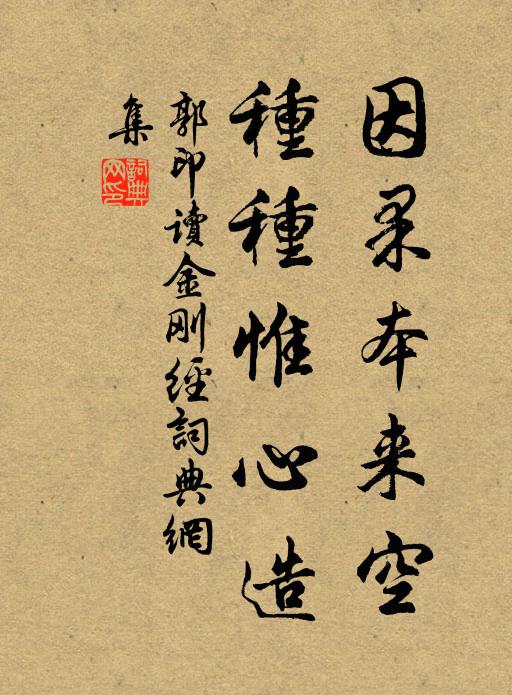 因果本来空
種種惟心造
郭印讀金刚經詞典網
集
詞典
网印